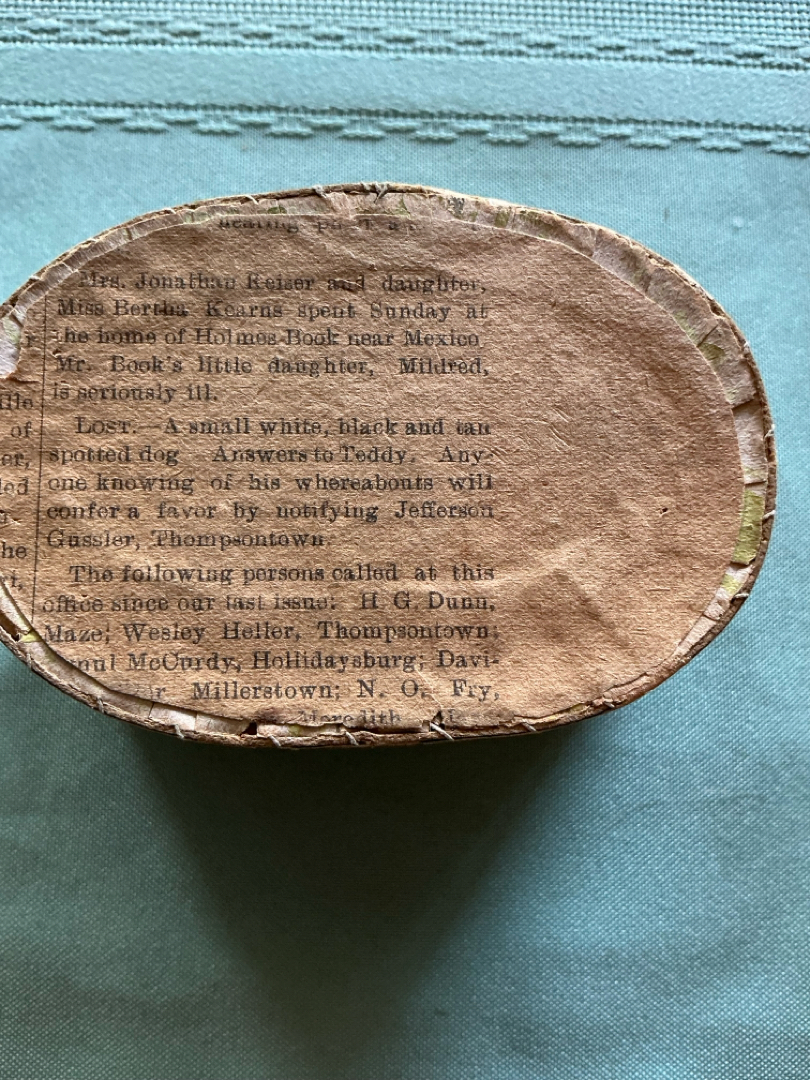 Mrs. Jonathan Keiser and daughter,
Miss Bertha Kearns spent Sunday at
the home of Holmes Book near Mexico
Mr. Book's little daughter, Mildred,
is seriously ill.
LOST.—A small white, black and tan
spotted dog Answers to Teddy. Any-
one knowing of his whereabouts will
confer a favor by notifying Jefferson
Gussler, Thompsontown.
The following persons called at this
office since our last issue: H. G. Dunn,
Maze; Wesley Heller, Thompsontown;
McCurdy, Hollidaysburg; Davi-
Millerstown; N. O. Fry,
Meredith
of
er,
he